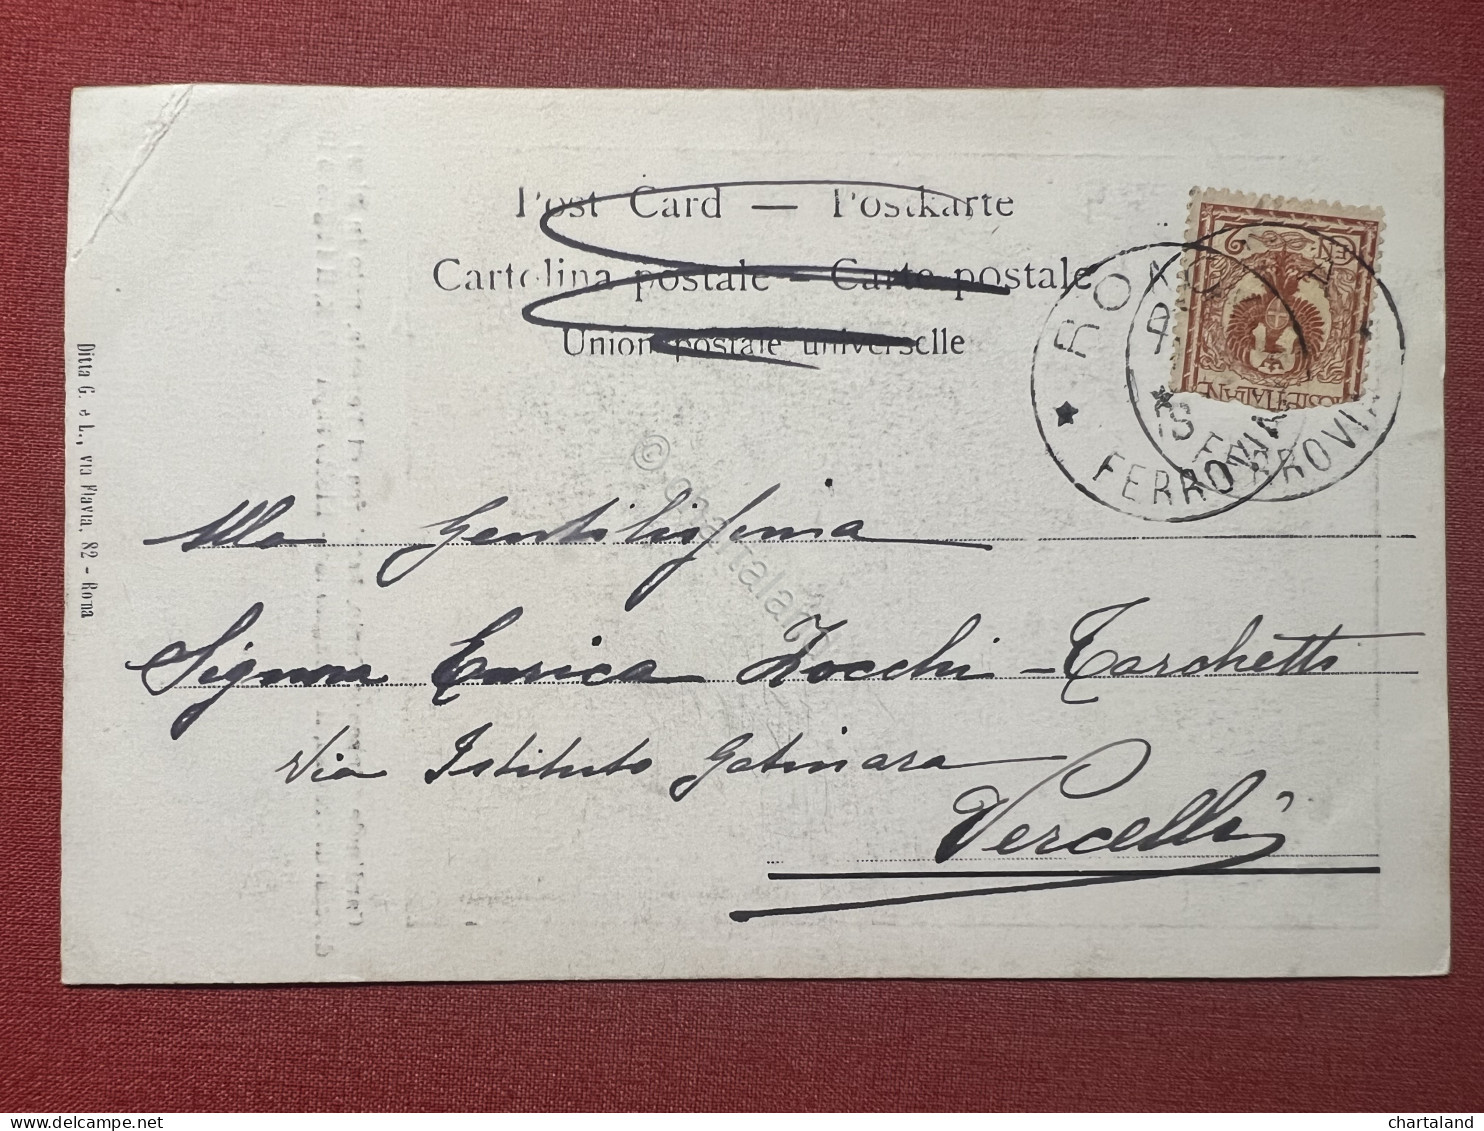 Post Card — Postkarte
Cartolina postale - Carte postale
Union postale universelle
Ditta G. e L., via Flavia, 82 - Roma
ROMA
FERROVIA
FERROVIA
Alla Gentilissima
Signora Enrica Zocchi - Tarchetti
Via Istituto Gatinara
Vercelli
© chartaland
delcampe.net
chartaland